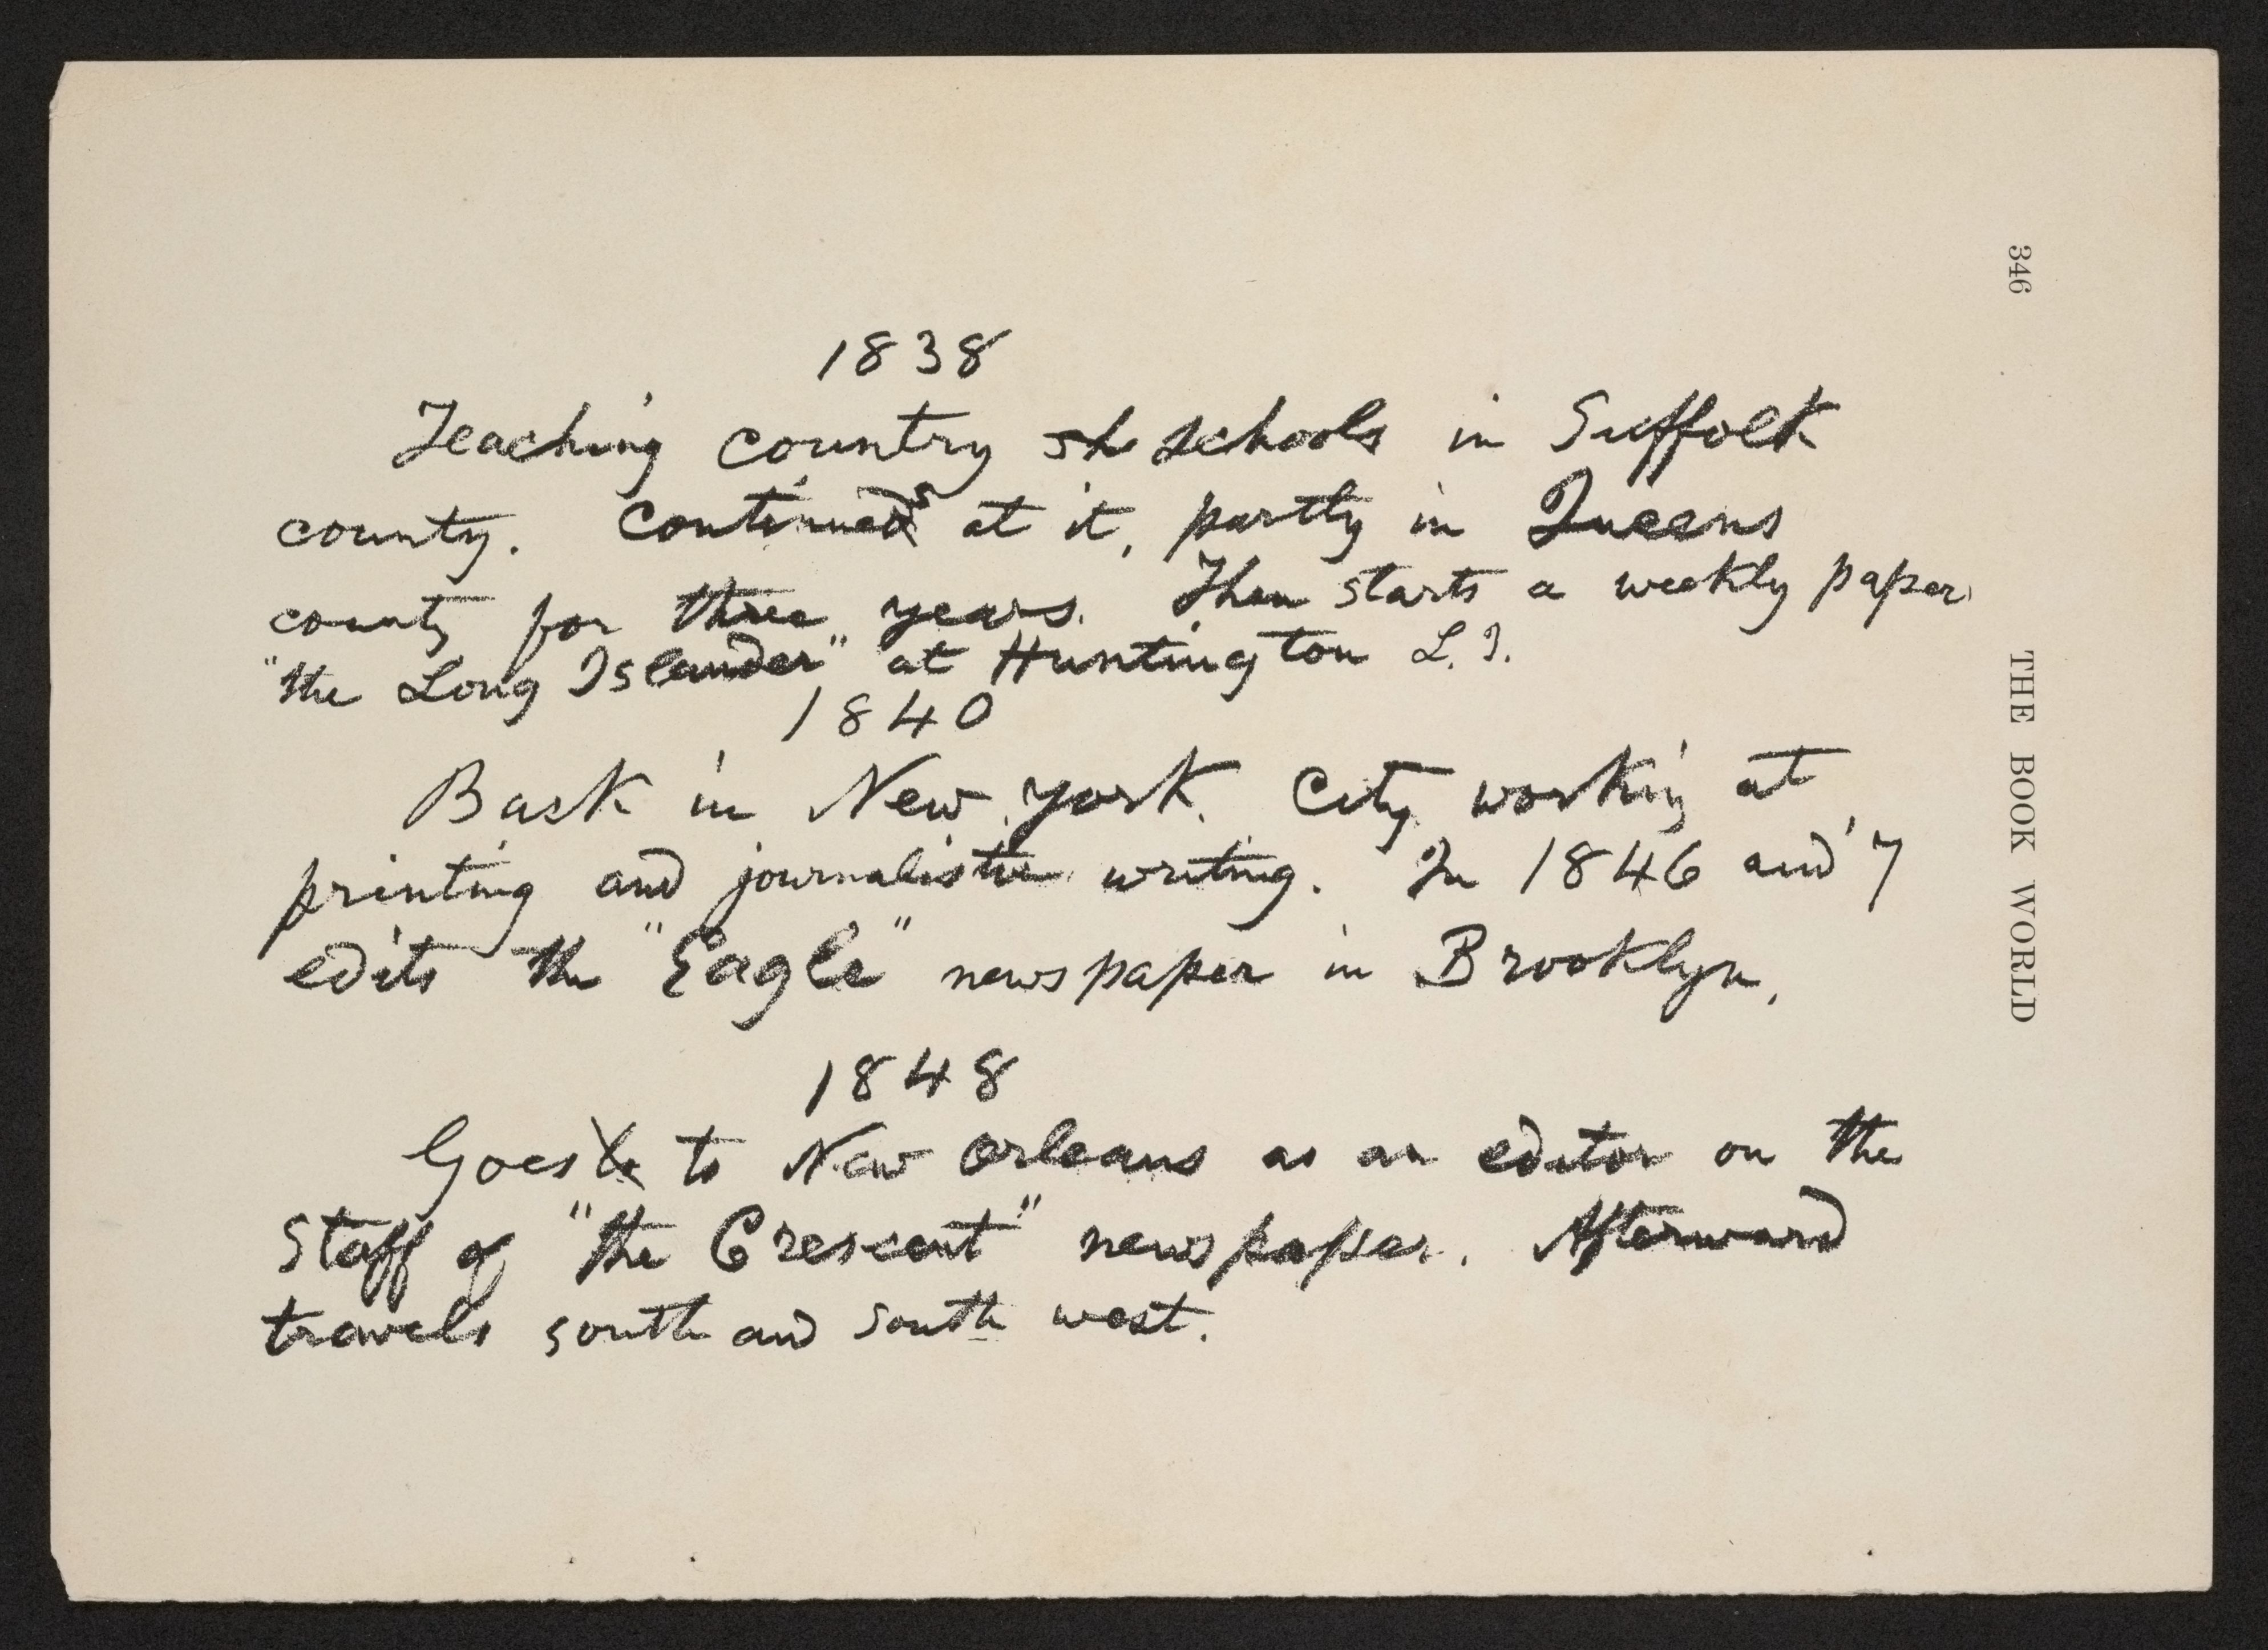 1838
Teaching country sh schools in Suffolk
county. Continueds at it, partly in Queens
county for three years. Then starts a weekly paper
"the Long Islander" at Huntington L. I.
1840
Back in New York City working at
printing and journalistic writing. In 1846 and '7
edits the "Eagle" newspaper in Brooklyn,
1848
Goes to New Orleans as an editor on the
staff of "the Crescent" newspaper. Afterward
travels south and south west.
346 THE BOOK WORLD